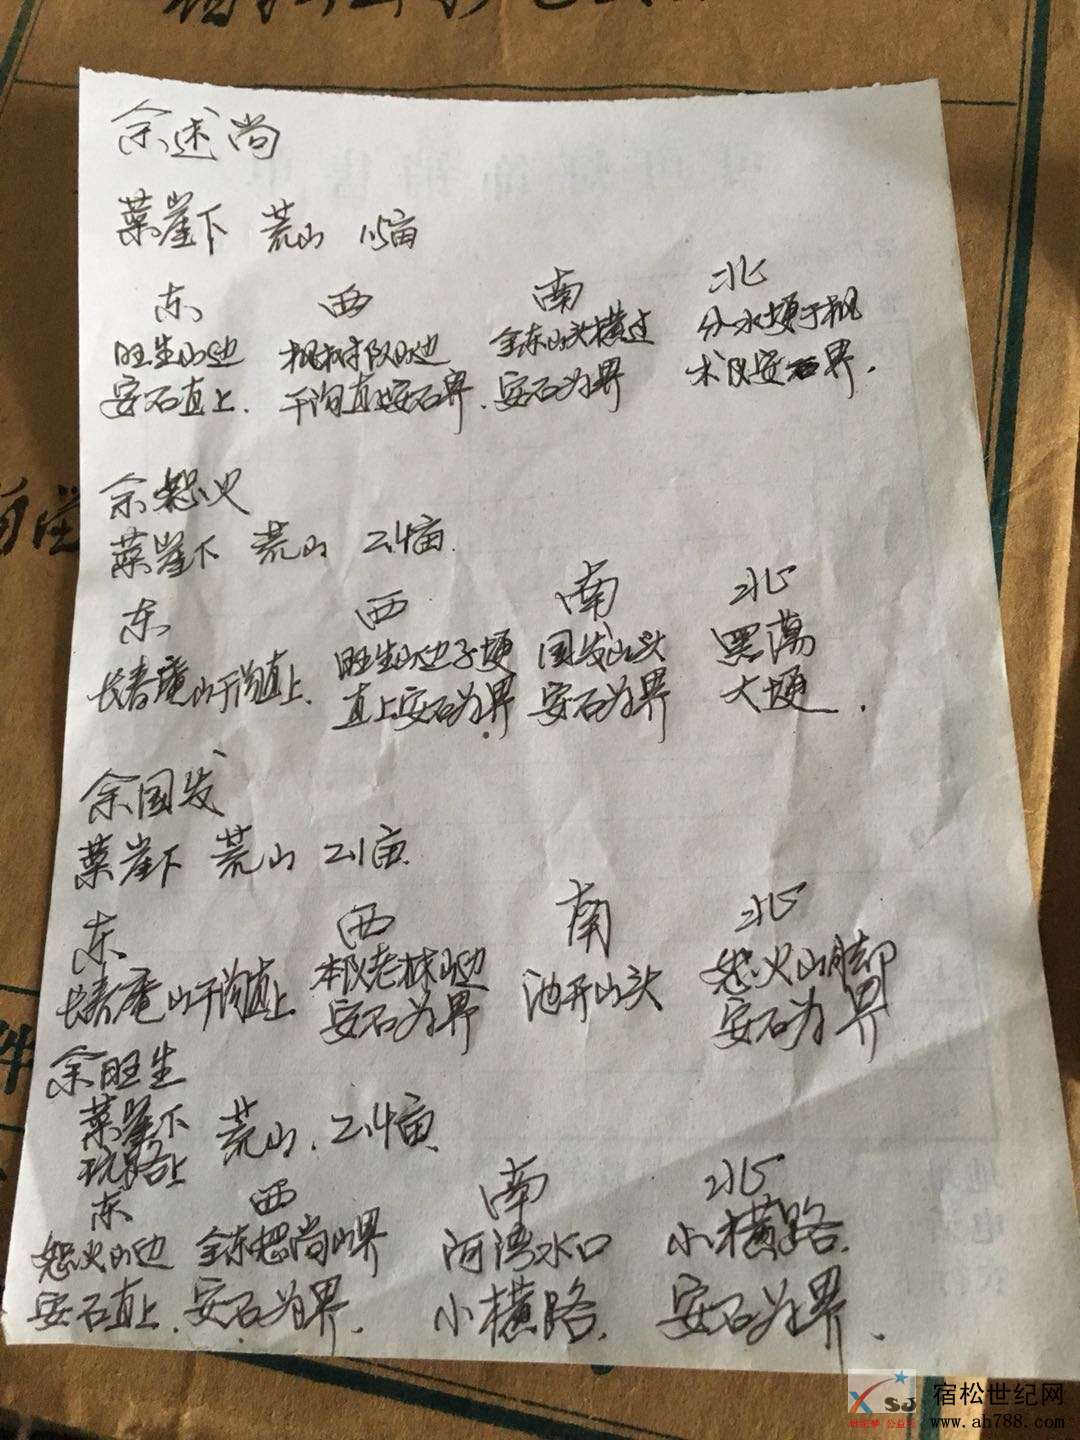 余述尚
菜崖下 荒山 1.5亩
东 西 南 北
旺生山边 枫树队山边 金东山头横过 分水埂于枫
安石直上. 干沟直上安石界. 安石为界 木队安石界.
余恕火
菜崖下 荒山 2.4亩.
东 西 南 北
长春庵山干沟直上. 旺生山边子埂 国发山头 黑凹
直上安石为界 安石为界 大埂.
余国发
菜崖下 荒山 2.1亩.
东 西 南 北
长春庵山干沟直上 本队老林山边 池开山头 恕火山脚
安石为界 安石为界
余旺生
菜崖下 荒山. 2.4亩.
坑路上
东 西 南 北
恕火山边 金东恕尚山界 河湾水口 小横路.
安石直上. 安石为界. 小横路. 安石为界.
SJ
宿松世纪网
www.ah788.com